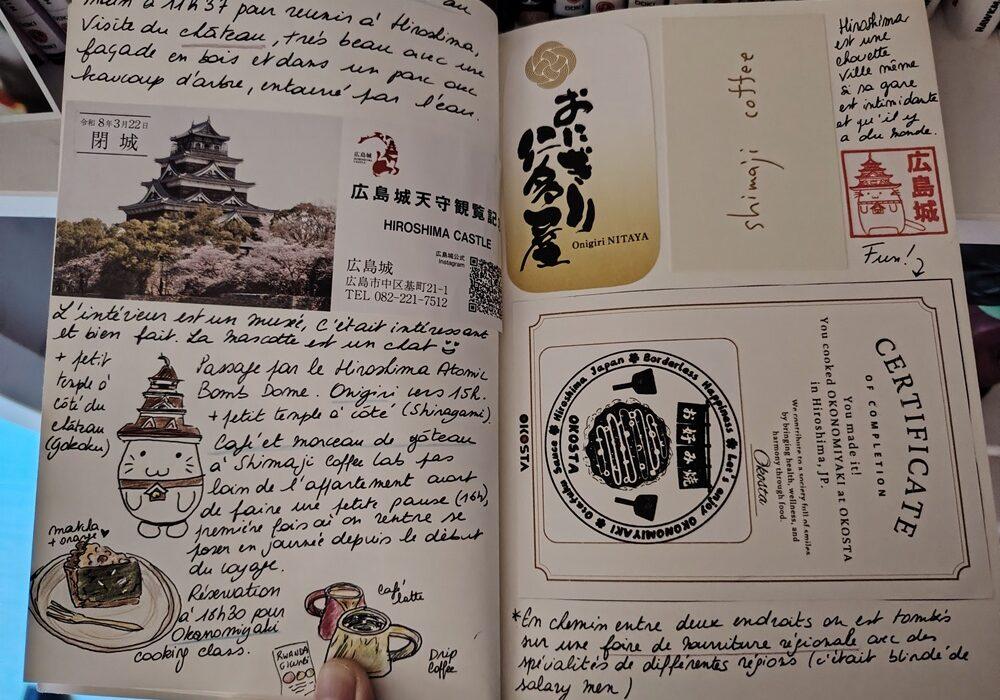 au
main à 11h37 pour revenir à Hiroshima.
Visite du château, très beau avec une
façade en bois et dans un parc avec
beaucoup d'arbre, entouré par l'eau.
令和8年3月22日
閉城
広島城
広島城天守観覧記
HIROSHIMA CASTLE
広島城
広島市中区基町21-1
TEL 082-221-7512
広島城公式
Instagram
L'intérieur est un musé, c'était intéressant
et bien fait. La mascotte est un chat
+ petit
temple à
côté du
château
(gokoku)
Passage par le Hiroshima Atomic
Bomb Dome. Onigiri vers 15h.
+ petit temple à côté (Shiragami).
Café et morceau de gâteau
à Shimaji Coffee Lab pas
loin de l'appartement avant
de faire une petite pause (16h)
première fois où on rentre se
poser en journée depuis le début
du voyage.
matcha
+ orange
Réservation
à 18h30 pour
Okonomiyaki
cooking class.
café
latte
RWANDA
Drip
coffee
おにぎり
仁多屋
Onigiri NITAYA
shimaji coffee
Hiroshima
est une
chouette
ville même
si sa gare
est intimidante
et qu'il y
a du monde.
広島城
Fun!
CERTIFICATE
OF COMPLETION
You made it!
You cooked OKONOMIYAKI at OKOSTA
in Hiroshima, JP.
We contribute to a society full of smiles
by bringing health, wellness, and
harmony through food.
Okosta
Otafuku Sauce Hiroshima Japan Borderless Happiness Let's enjoy OKONOMIYAKI
お好み焼
OKOSTA
OKOSTA
*En chemin entre deux endroits on est tombés
sur une foire de nourriture régionale avec des
spécialités de différentes régions (c'était blindé de
salary men)